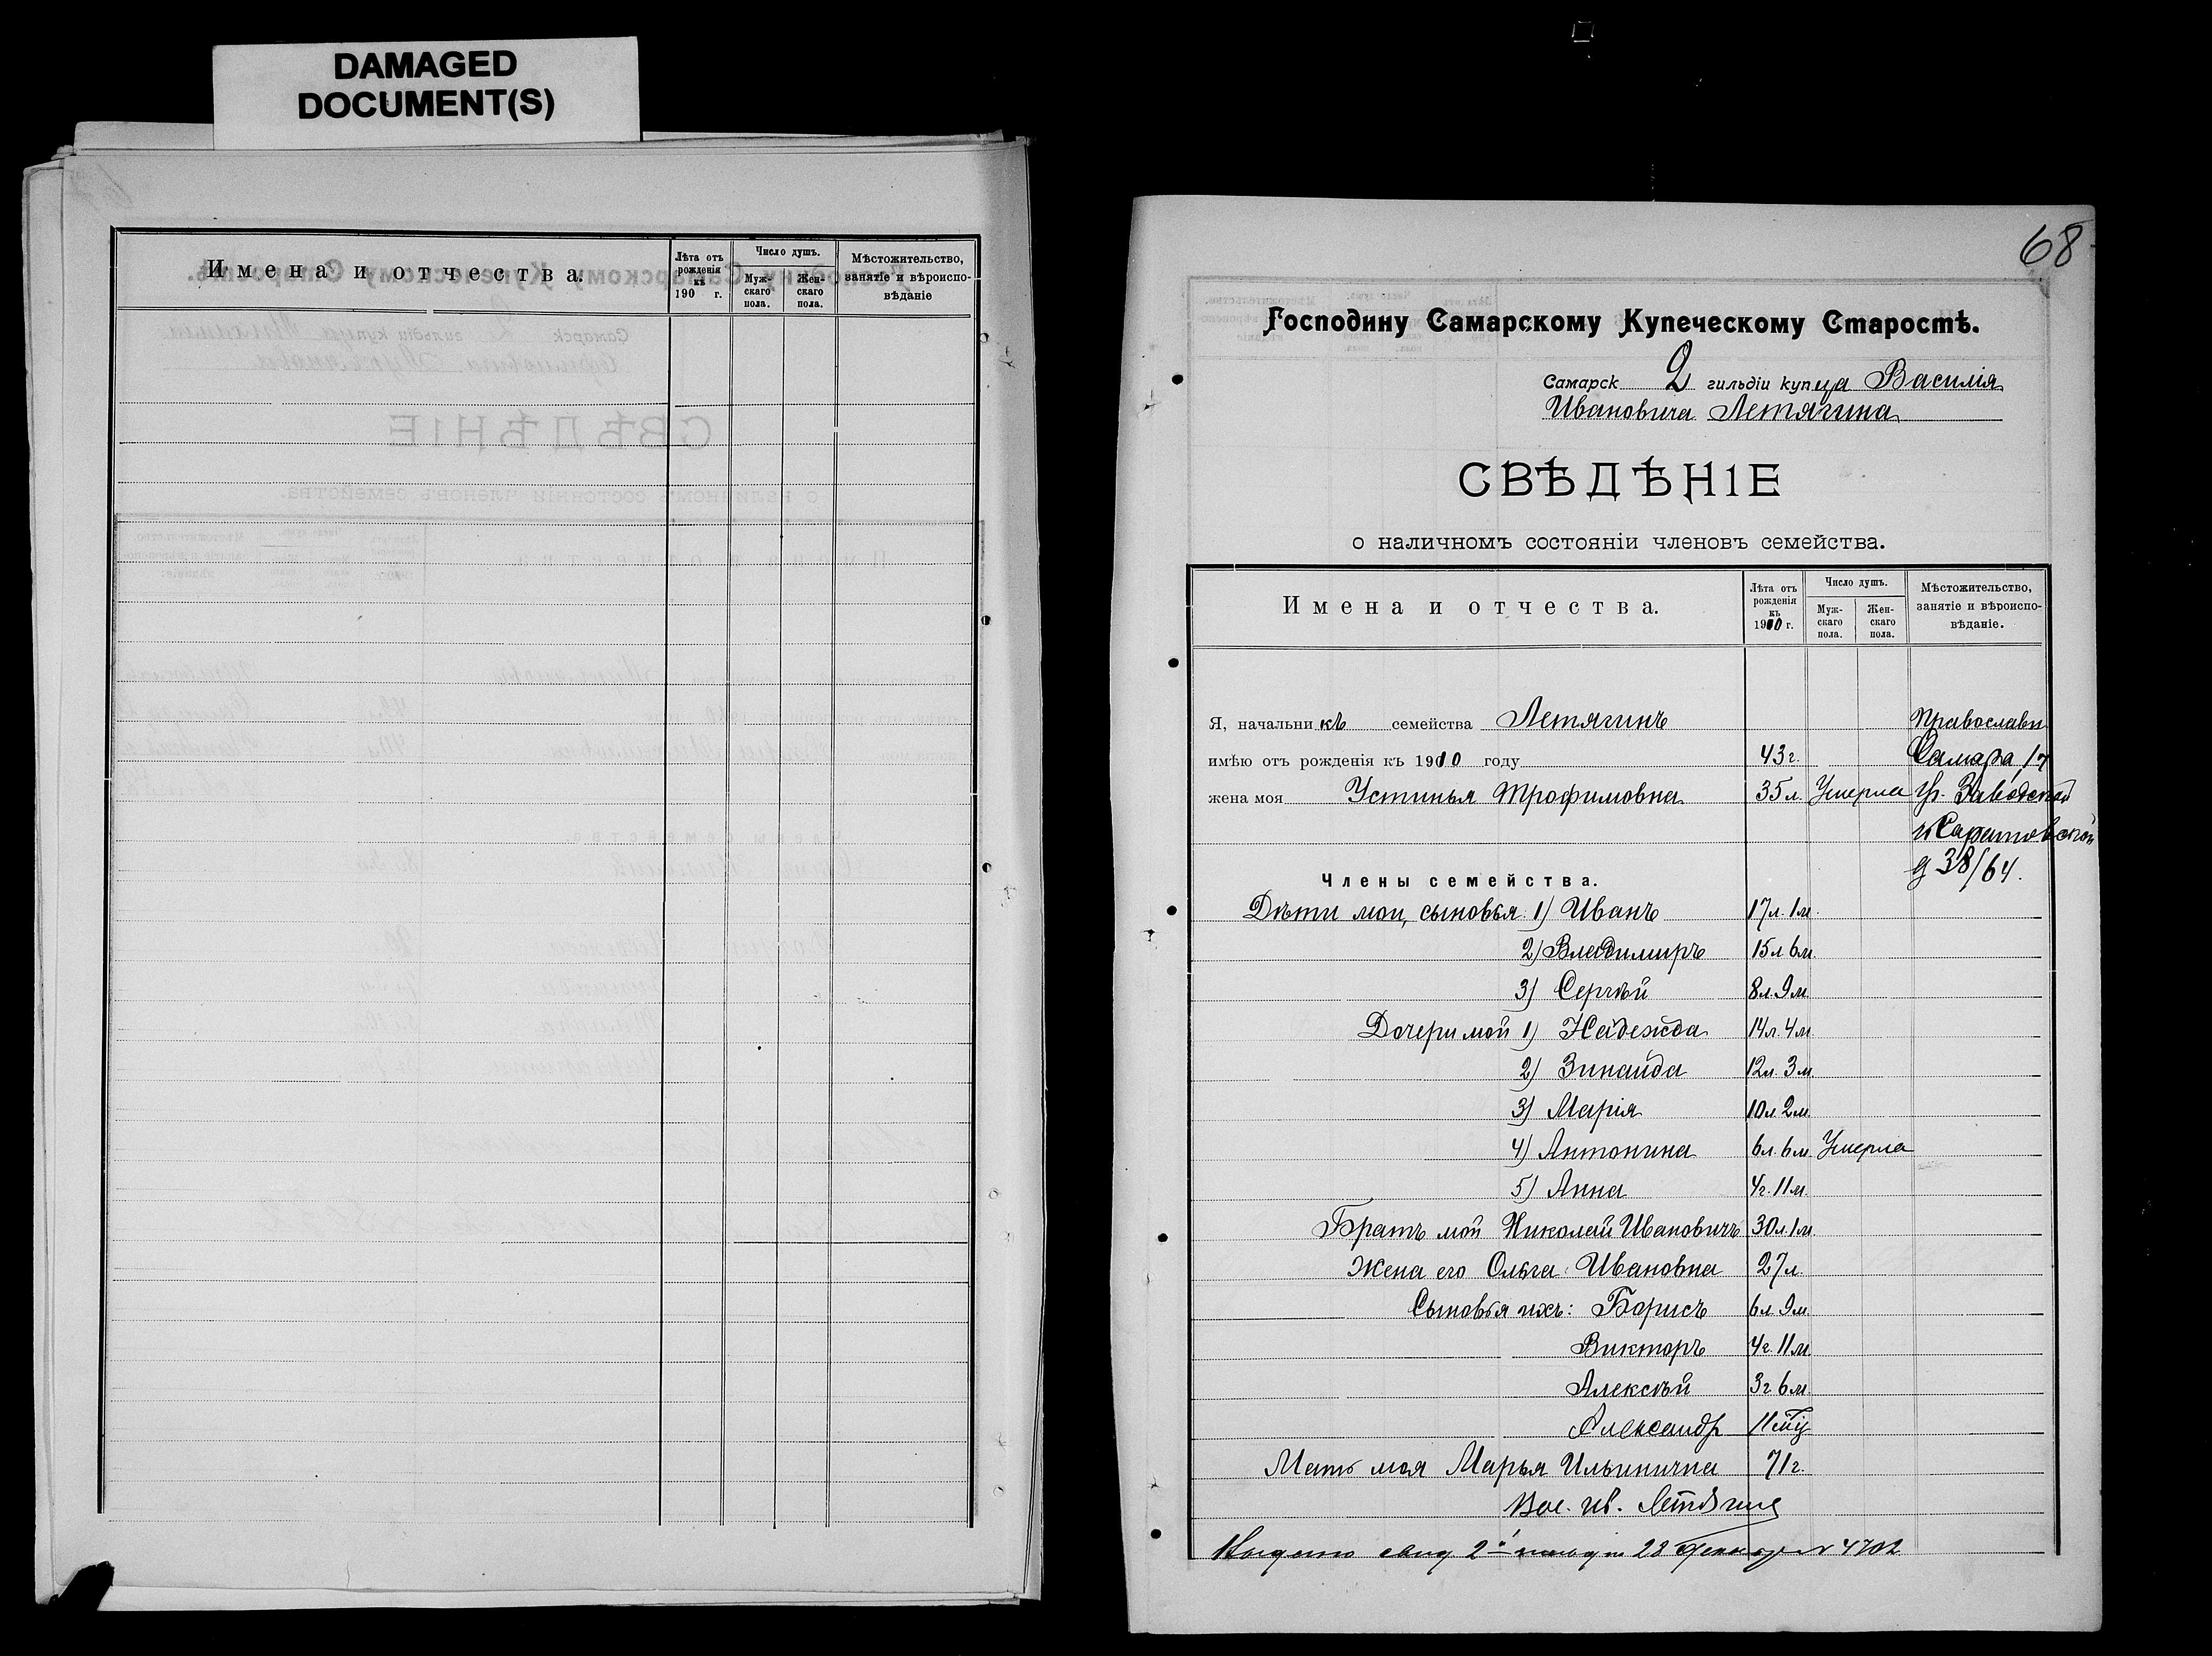 DAMAGED
DOCUMENT(S)
Имена и отчества.
Лѣта отъ рожденія къ 190 г.
Число душъ.
Мужскаго пола.
Женскаго пола.
Мѣстожительство, занятіе и вѣроисповѣданіе
68
Господину Самарскому Купеческому Старостѣ.
Самарск 2 гильдіи купца Василія
Ивановича Летягина
СВѢДѢНІЕ
о наличномъ состояніи членовъ семейства.
Имена и отчества.
Лѣта отъ рожденія къ 1910 г.
Число душъ.
Мужскаго пола.
Женскаго пола.
Мѣстожительство, занятіе и вѣроисповѣданіе.
Я, начальникъ семейства Летягинъ Православн
имѣю отъ рожденія къ 1910 году 43 г. Самара, 17
жена моя Устинья Трофимовна 35 л. Умерла Заводской
и Саратовской
д 38/64.
Члены семейства.
Дѣти мои, сыновья: 1) Иванъ 17 л. 1 м.
2) Владимиръ 15 л 6 м.
3) Сергѣй 8 л. 9 м.
Дочери мой 1) Надежда 14 л. 4 м
2) Зинаида 12 л. 3 м.
3) Марія 10 л 2 м.
4) Антонина 6 л. 6 м. Умерла
5) Анна 4 г. 11 м.
Братъ мой Николай Ивановичъ 30 л. 1 м
Жена его Ольга Ивановна 27 л.
Сыновья ихъ: Борисъ 6 л. 9 м.
Викторъ 4 г. 11 м.
Алексѣй 3 г 6 м.
Александр 11 мц
Мать моя Марья Ильинична 71 г.
Вас. Ив. Летягинъ
Выдано свид 2й 28 Декабря № 4702